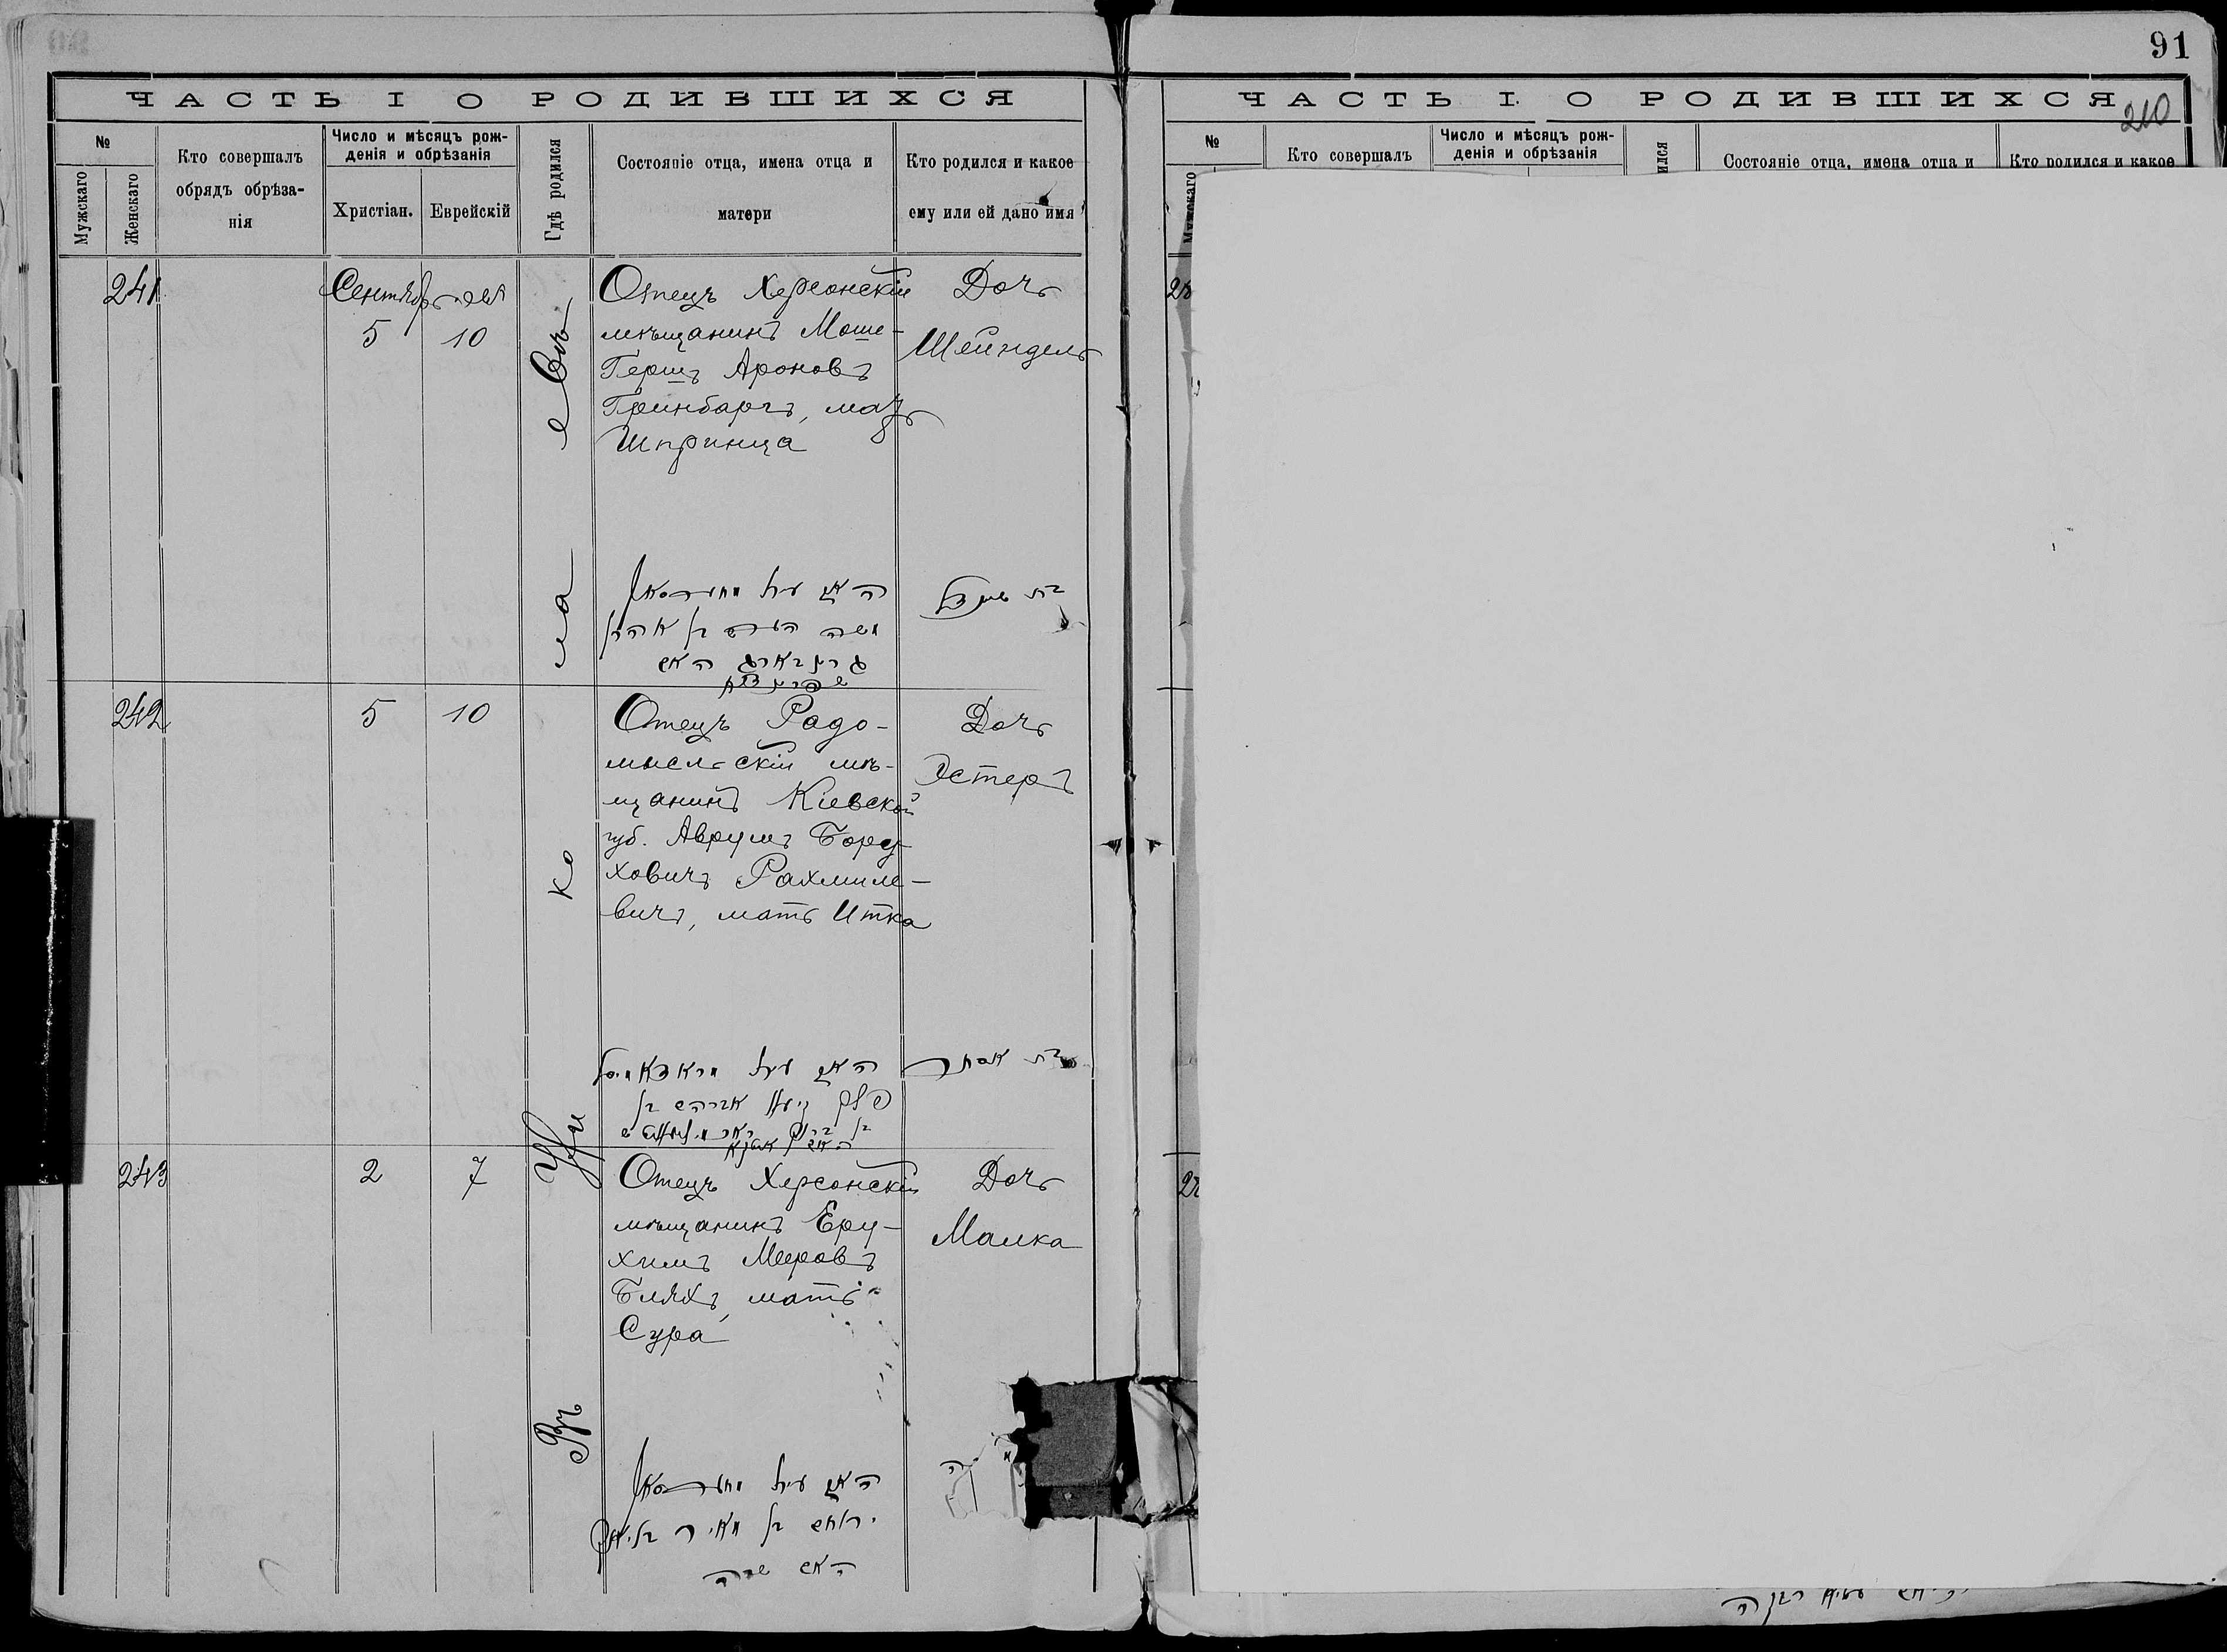 91
ЧАСТЬ I О РОДИВШИХСЯ
№
Мужскаго
Женскаго
Кто совершалъ
обрядъ обрѣза-
нія
Число и мѣсяцъ рож-
денія и обрѣзанія
Христіан.
Еврейскій
Гдѣ родился
Состояніе отца, имена отца и
матери
Кто родился и какое
ему или ей дано имя
241
Сентябр
5
10
Отецъ Херсонскій
мѣщанинъ Моше-
Гершъ Ароновъ
Гринбаргъ, мать
Шпринца
Дочь
Шейндель
משה הערש בן אהרן
גרינבארג האם
242
5
10
Отецъ Радо-
мысльскій мѣ-
щанинъ Кіевской
губ. Аврумъ Бору-
ховичъ Рахмиле-
вичъ, мать Итка
Дочь
Эстеръ
בת אסתר
243
2
7
Отецъ Херсонскій
мѣщанинъ Еру-
химъ Мееровъ
Бляхъ, мать
Сура
Дочь
Малка
ירוחם בן מאיר בליאך
האם שרה
ЧАСТЬ I. О РОДИВШИХСЯ
210
№
Мужскаго
Кто совершалъ
Число и мѣсяцъ рож-
денія и обрѣзанія
ился
Состояніе отца, имена отца и
Кто родился и какое